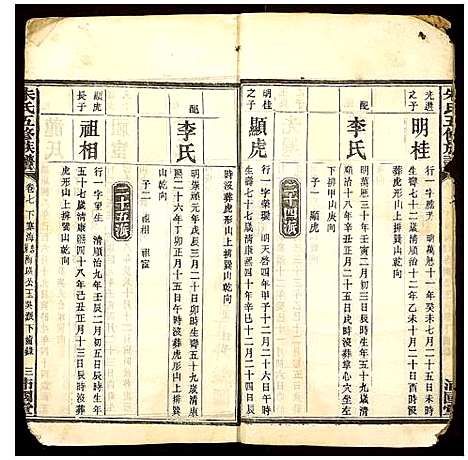 朱氏五修族譜
光進之子
明桂
行一字
明萬曆十一年癸未七月二十五日未時
生清順治十二年乙未十月二十
配
李氏
明萬曆三十年壬寅二月初三日辰時生壽五十九歲清
順治十八年辛丑正月二十五日巳時沒葬章心穴坐左
下排甲山庚向
子一 顯虎
二十四派
明桂之子
顯虎
行一字榮環
明天啓四年甲子十二月二十六日
生清康熙二十四年
時沒葬虎形山上排巽山乾向
配
李氏
明崇禎元年戊辰三月二十日卯時生壽五十九歲清康
熙二十六年丁卯正月十五日午時沒葬虎形山上排巽
山乾向
子二 祖相 祖富
二十五派
顯虎長子
祖相
行一字野生
清順治九年壬辰二月初五日辰時生壽
五十七歲清康熙四十八年己丑正月十三日辰時沒葬
虎形山上排巽山乾向
朱氏五修族譜
卷七
三
沛國堂